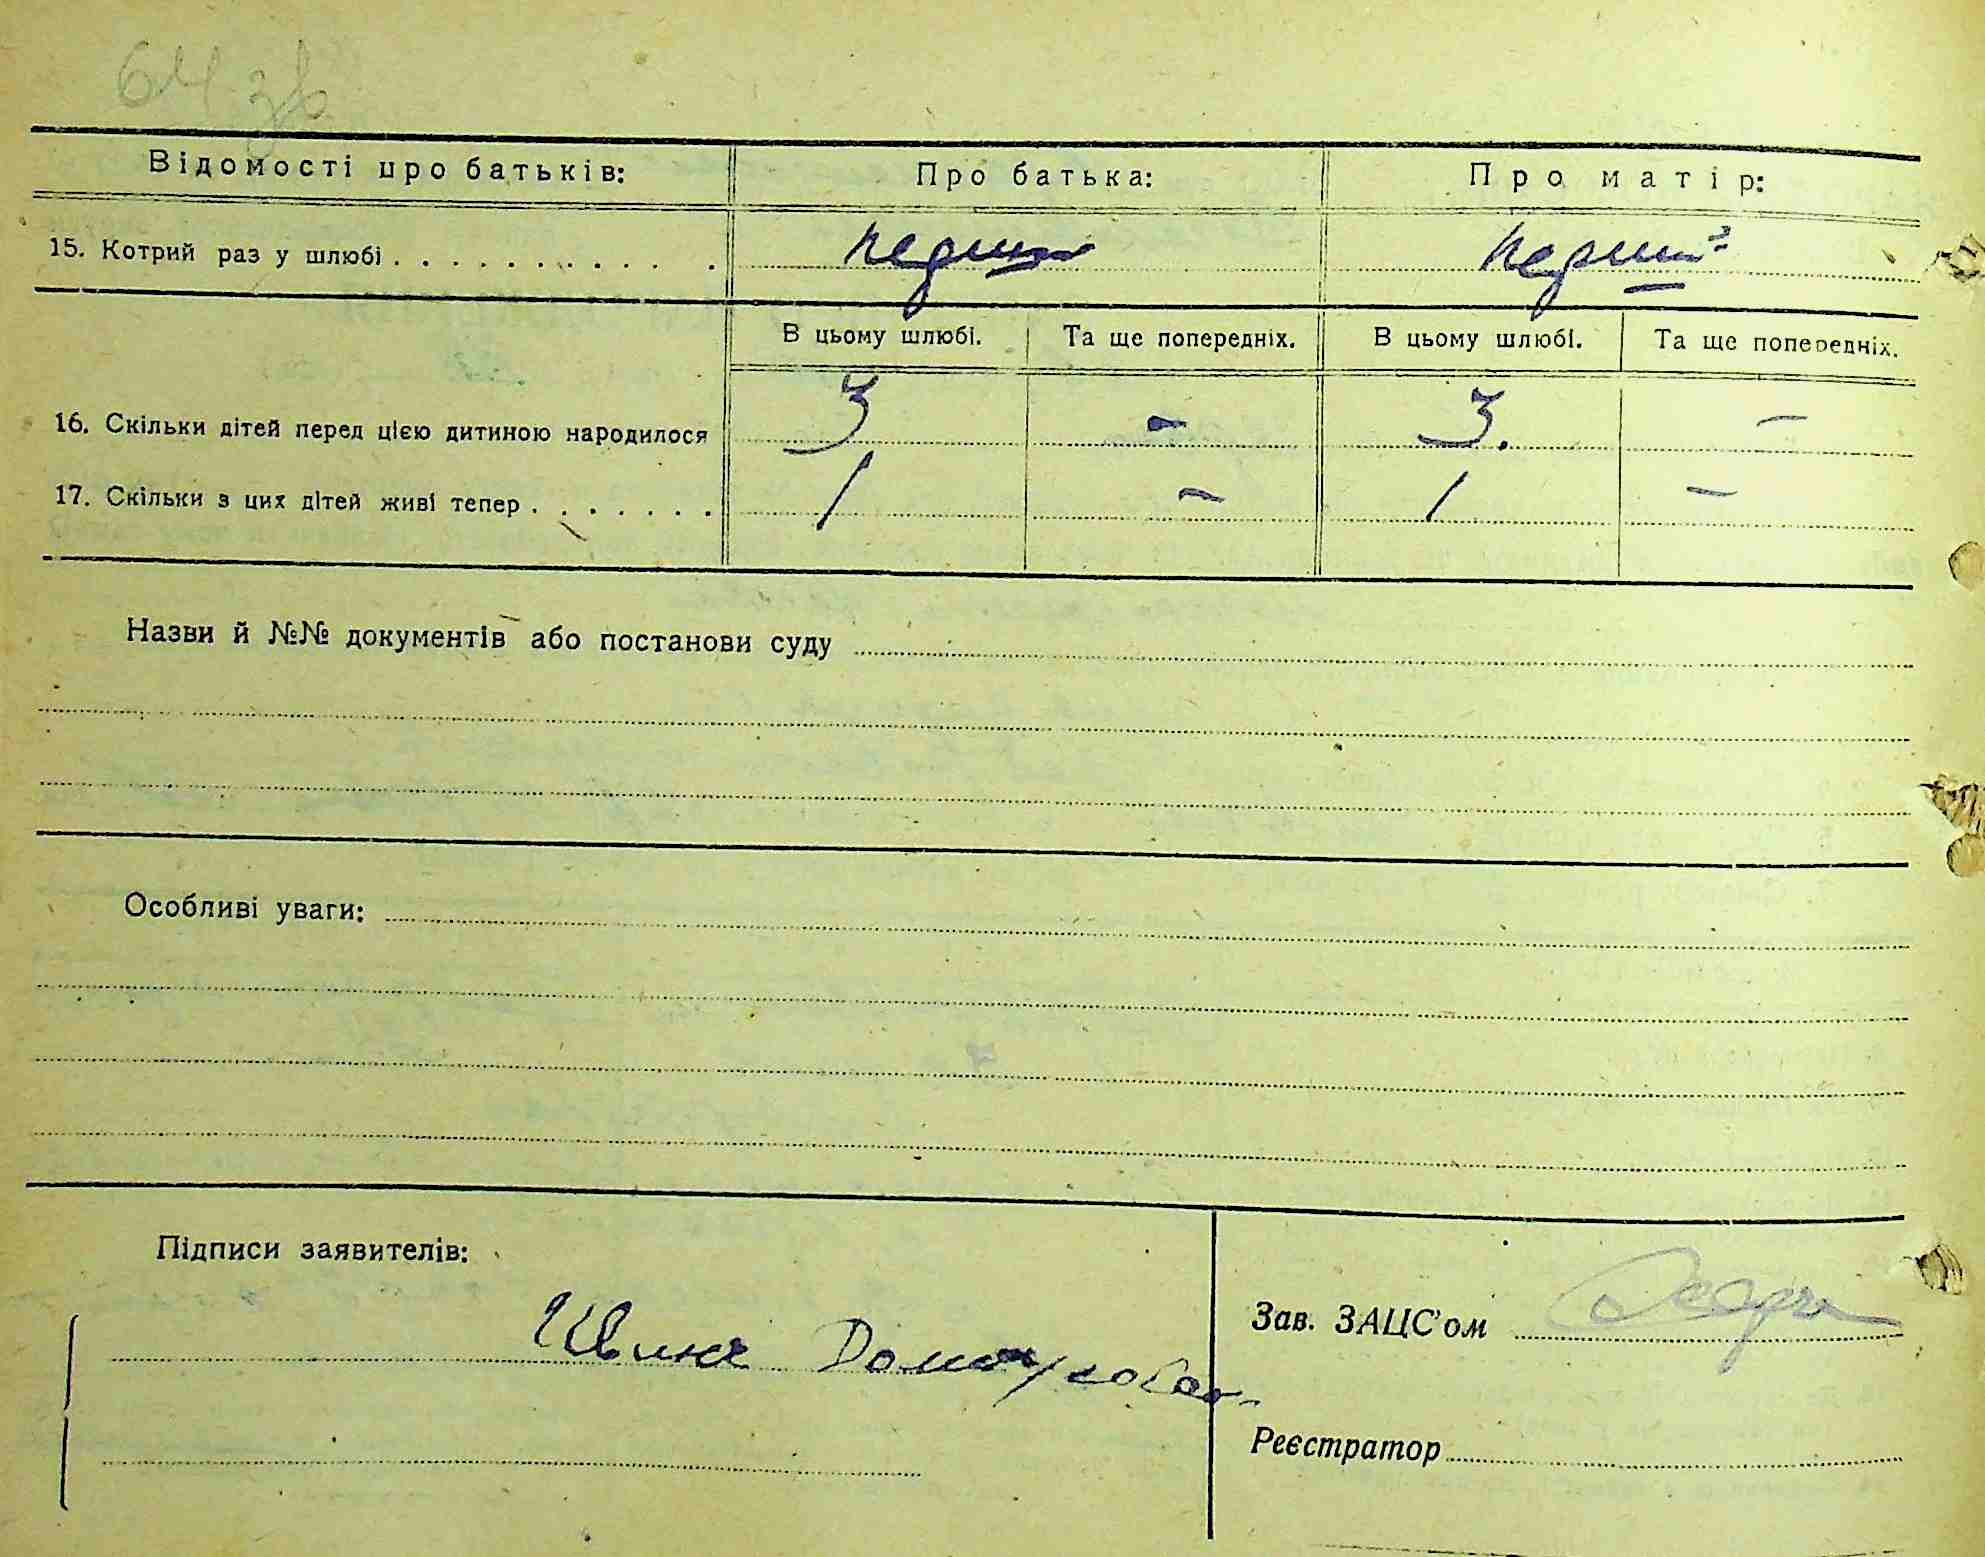 64 зв
Відомості про батьків: Про батька: Про матір:
15. Котрий раз у шлюбі . . . . . . . . . . . . перший перший
В цьому шлюбі. Та ще попередніх. В цьому шлюбі. Та ще попередніх.
16. Скільки дітей перед цією дитиною народилося 3 - 3. -
17. Скільки з цих дітей живі тепер . . . . . . . 1 - 1 -
Назви й №№ документів або постанови суду
Особливі уваги:
Підписи заявителів:
Зав. ЗАЦС'ом
Реєстратор